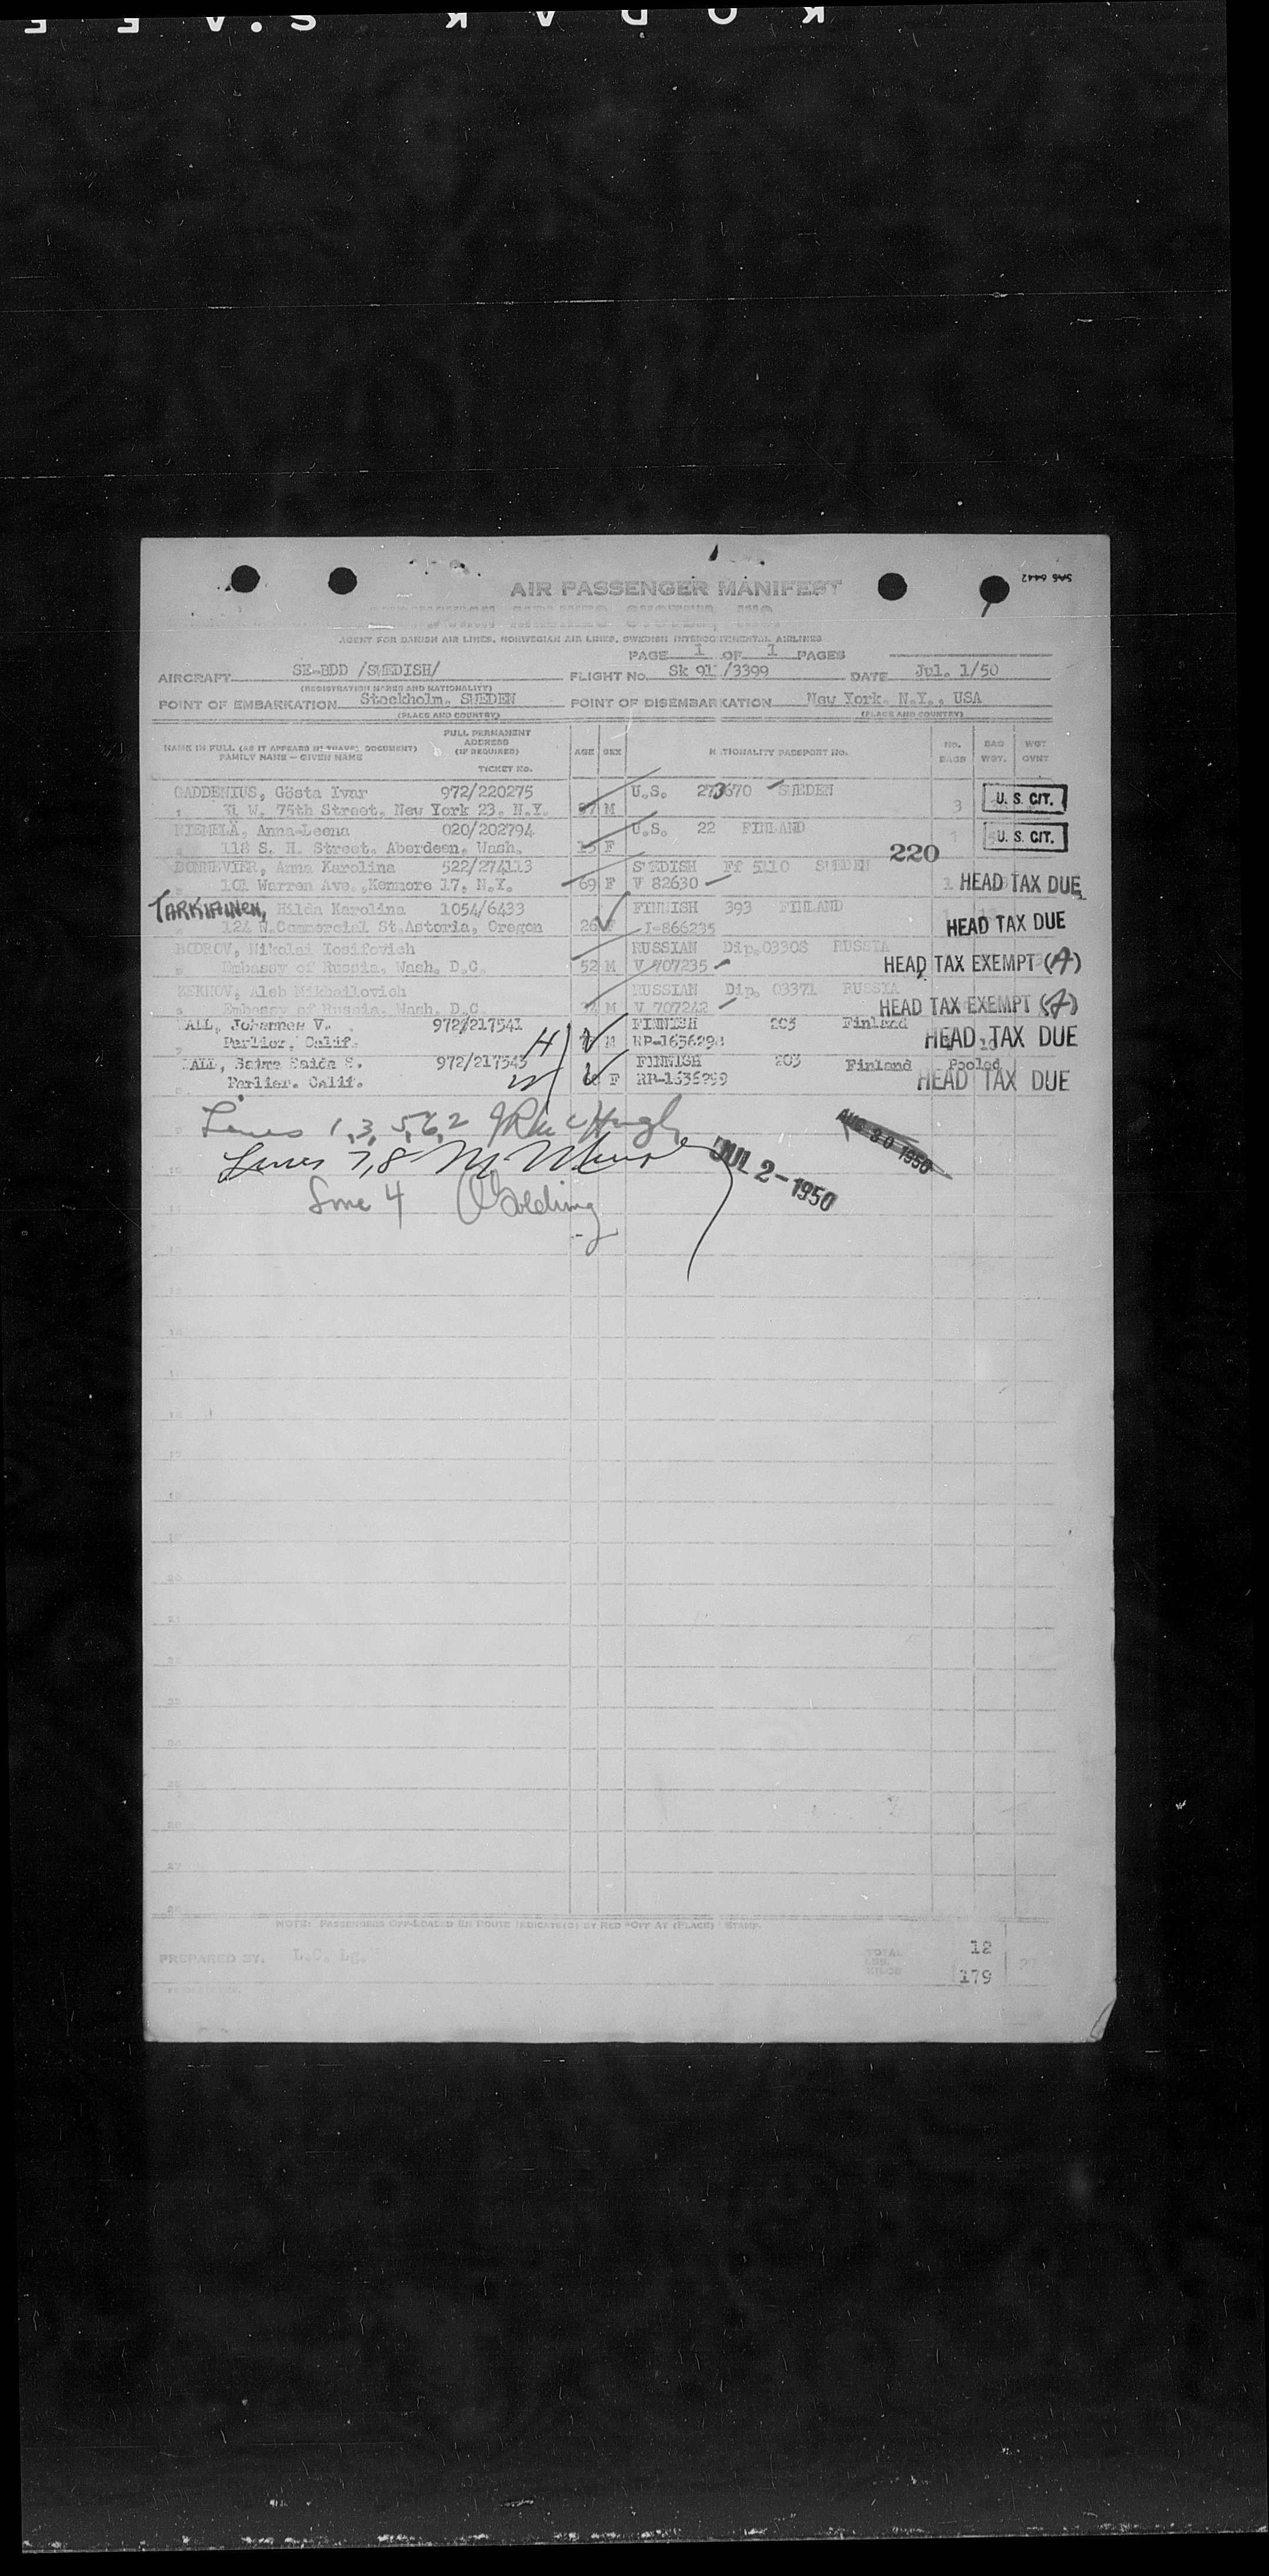 KODAK S.A.F E
AIR PASSENGER MANIFEST
SAS 6442
AIRLINES SYSTEM, INC.
AGENT FOR DANISH AIR LINES, NORWEGIAN AIR LINES, SWEDISH INTERCONTINENTAL AIRLINES
PAGE 1 OF 1 PAGES
AIRCRAFT SE-BDD /SWEDISH/ FLIGHT NO. Sk 911/3399 DATE Jul. 1/50
(REGISTRATION MARKS AND NATIONALITY)
POINT OF EMBARKATION Stockholm, SWEDEN POINT OF DISEMBARKATION New York, N.Y., USA
(PLACE AND COUNTRY) (PLACE AND COUNTRY)
NAME IN FULL (AS IT APPEARS IN TRAVEL DOCUMENT) FAMILY NAME - GIVEN NAME FULL PERMANENT ADDRESS (IF REQUIRED) TICKET NO. AGE SEX NATIONALITY PASSPORT NO. NO. BAGS BAG WGT. WGT OVNT
GADDENIUS, Gösta Ivar 972/220275 U.S. 273670 SWEDEN
1 31 W. 75th Street, New York 23, N.Y. M 3 U. S. CIT.
NIEMELÄ, Anna-Leena 020/202794 U.S. 22 FINLAND
118 S. H. Street, Aberdeen, Wash. F U. S. CIT.
220
BONNEVIER, Anna Karolina 522/274113 SWEDISH Ff 5110 SWEDEN
101 Warren Ave., Kenmore 17, N.Y. 69 F V 82630 1 HEAD TAX DUE
TARKIAINEN, Hilda Karolina 1054/6433 FINNISH 393 FINLAND
124 W.Commercial St.Astoria, Oregon 26 F I-866235 HEAD TAX DUE
BODROV, Nikolai Iosifovich RUSSIAN Dip.03308 RUSSIA
Embassy of Russia, Wash. D.C. 52 M V 707235 HEAD TAX EXEMPT (A)
ZERHOV, Aleb Mikhailovich RUSSIAN Dip. 03371 RUSSIA
Embassy of Russia, Wash. D.C. M V 707242 HEAD TAX EXEMPT (A)
WALL, Johannes V. 972/217541 FINNISH 203 Finland
Parlier, Calif. H M RP-1636298 HEAD TAX DUE
WALL, Saima Saida S. 972/217543 FINNISH 203 Finland Pooled
Parlier. Calif. W F RP-1636299 HEAD TAX DUE
Lines 1,3,5,6,2
AUG 30 1950
Lines 7,8
JUL 2-1950
Line 4 Golding
NOTE: PASSENGERS OFF-LOADED EN ROUTE INDICATE(D) BY RED "OFF AT (PLACE)" STAMP.
PREPARED BY: L.C. Lg. TOTAL LBS. KILOS 12
179